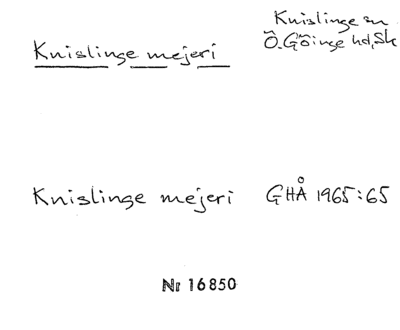 Knislinge mejeri
Knislinge sn
Ö. Göinge hd, Sk
Knislinge mejeri GHÅ 1965:65
Nr 16850